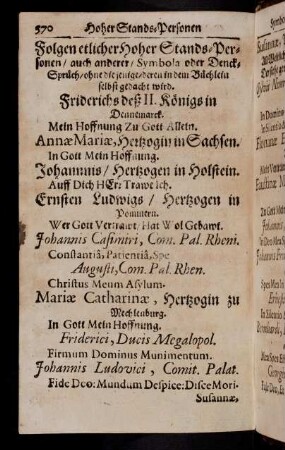 570 Hoher Stands-Personen
Folgen etlicher Hoher Stands-Per-
sonen / auch anderer / Symbola oder Denck-
Sprüch / ohne die jenige / deren in dem Büchlein
selbst gedacht wird.
Friderichs deß II. Königs in
Dennemarck.
Mein Hoffnung Zu Gott Allein.
Annæ Mariæ, Hertzogin in Sachsen.
In Gott Mein Hoffnung.
Johannnis / Hertzogen in Holstein.
Auff Dich HErr Trawt ich.
Ernsten Ludwigs / Hertzogen in
Pommern.
Wer Gott Vertrawt / Hat Wol Gebawt.
Johannis Casimiri, Com. Pal. Rheni.
Constantiâ, Patientiâ, Spe
Augusti, Com. Pal. Rhen.
Christus Meum Asylum.
Mariæ Catharinæ, Hertzogin zu
Mechlenburg.
In Gott Mein Hoffnung.
Friderici, Ducis Megalopol.
Firmum Dominus Munimentum.
Johannis Ludovici, Comit. Palat.
Fide Deo: Mundum Despice: Disce Mori.
Susannæ,